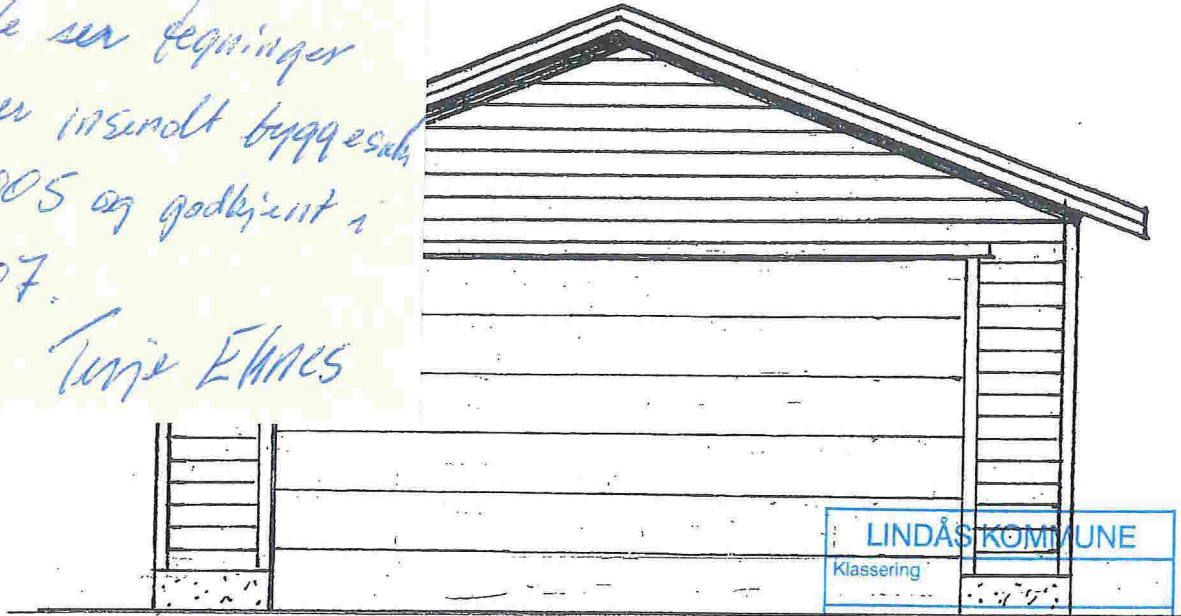 ser tegninger
er insendt byggesak
005 og godkjent i
07.
Terje Eknes
LINDÅS KOMMUNE
Klassering